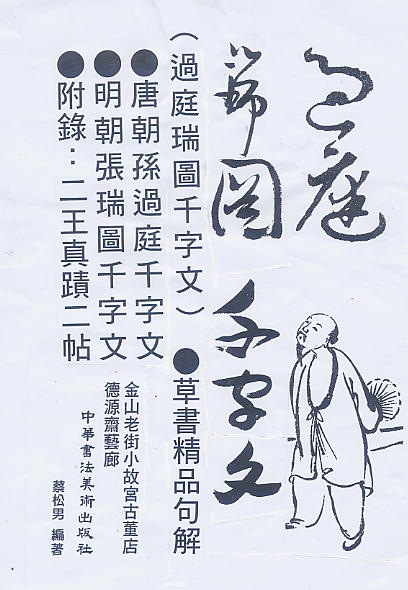 過庭
瑞圖
千字文
（過庭瑞圖千字文）●草書精品句解
●唐朝孫過庭千字文
●明朝張瑞圖千字文
●附錄：二王真蹟二帖
金山老街小故宮古董店
德源齋藝廊
中華書法美術出版社
蔡松男 編著